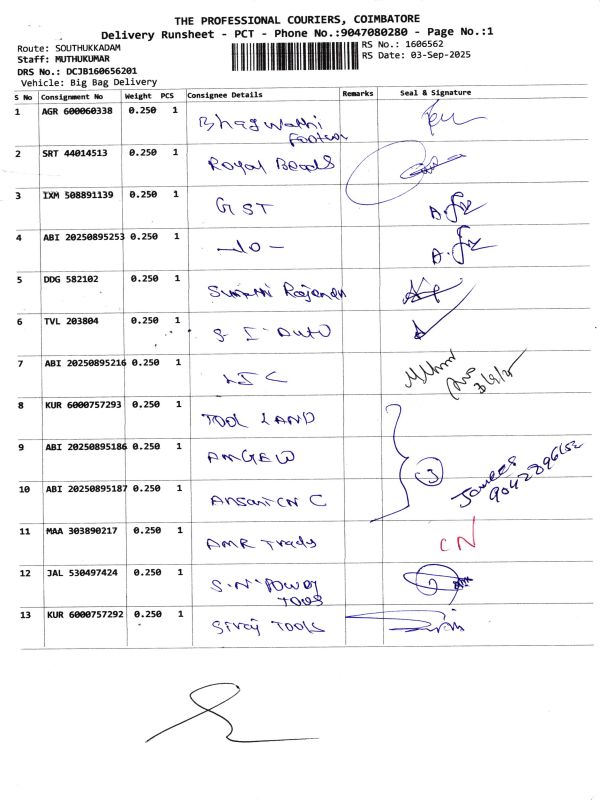 THE PROFESSIONAL COURIERS, COIMBATORE
Delivery Runsheet - PCT - Phone No.:9047080280 - Page No.:1
Route: SOUTHUKKADAM
RS No.: 1606562
Staff: MUTHUKUMAR
RS Date: 03-Sep-2025
DRS No.: DCJB160656201
Vehicle: Big Bag Delivery
S No Consignment No Weight PCS Consignee Details Remarks Seal & Signature
1 AGR 600060338 0.250 1 Bhagwathi
2 SRT 44014513 0.250 1 Royal Beads
3 IXM 508891139 0.250 1 GST
4 ABI 20250895253 0.250 1 -do-
5 DDG 582102 0.250 1
6 TVL 203804 0.250 1 S I Auto
7 ABI 20250895216 0.250 1 LIC 3/9/25
8 KUR 6000757293 0.250 1 TOOL LAND
9 ABI 20250895186 0.250 1 3
10 ABI 20250895187 0.250 1
11 MAA 303890217 0.250 1 AMR Trads CN
12 JAL 530497424 0.250 1 S.N. Power
Tools
13 KUR 6000757292 0.250 1 Sivaj TOOLS